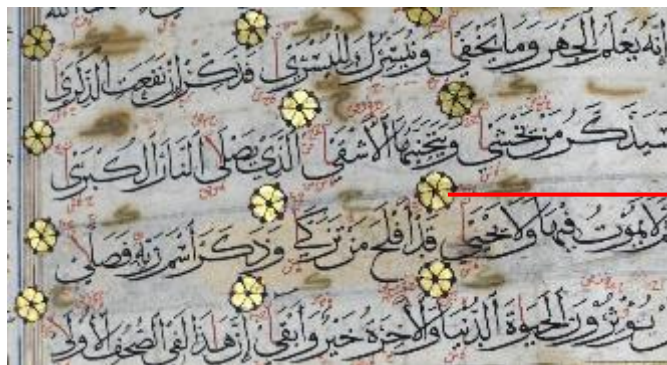 إِنَّهُ يَعْلَمُ الْجَهْرَ وَمَا يَخْفَىٰ وَنُيَسِّرُكَ لِلْيُسْرَىٰ فَذَكِّرْ إِنْ نَفَعَتِ الذِّكْرَىٰ
سَيَذَّكَّرُ مَنْ يَخْشَىٰ وَيَتَجَنَّبُهَا الْأَشْقَىٰ الَّذِي يَصْلَى النَّارَ الْكُبْرَىٰ
لَا يَمُوتُ فِيهَا وَلَا يَحْيَىٰ قَدْ أَفْلَحَ مَنْ تَزَكَّىٰ وَذَكَرَ اسْمَ رَبِّهِ فَصَلَّىٰ
تُؤْثِرُونَ الْحَيٰوةَ الدُّنْيَا وَالْآخِرَةُ خَيْرٌ وَأَبْقَىٰ إِنَّ هَٰذَا لَفِي الصُّحُفِ الْأُولَىٰ